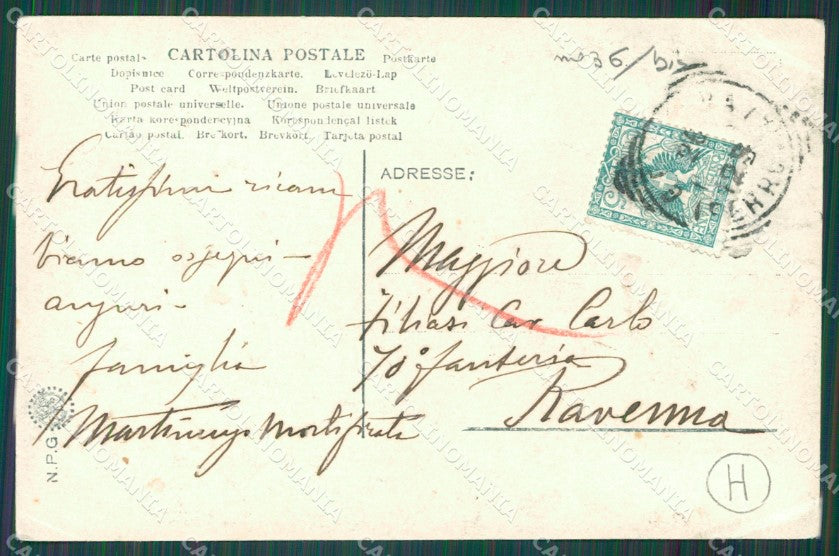 Carte postale CARTOLINA POSTALE Postkarte
Dopisnice Correspondenzkarte. Levelező-Lap
Post card Weltpostverein. Briefkaart
Union postale universelle. Unione postale universale
Karta korespondencyjna Korespondenčal listek
Cartão postal. Brefkort. Brevkort. Tarjeta postal
ADRESSE:
Gratissimi ricam
biamo ossequi -
auguri -
famiglia
Martinengo
Maggiore
Filiasi Cav Carlo
70° fanteria
Ravenna
N.P.G
H
CARTOLINOMANIA